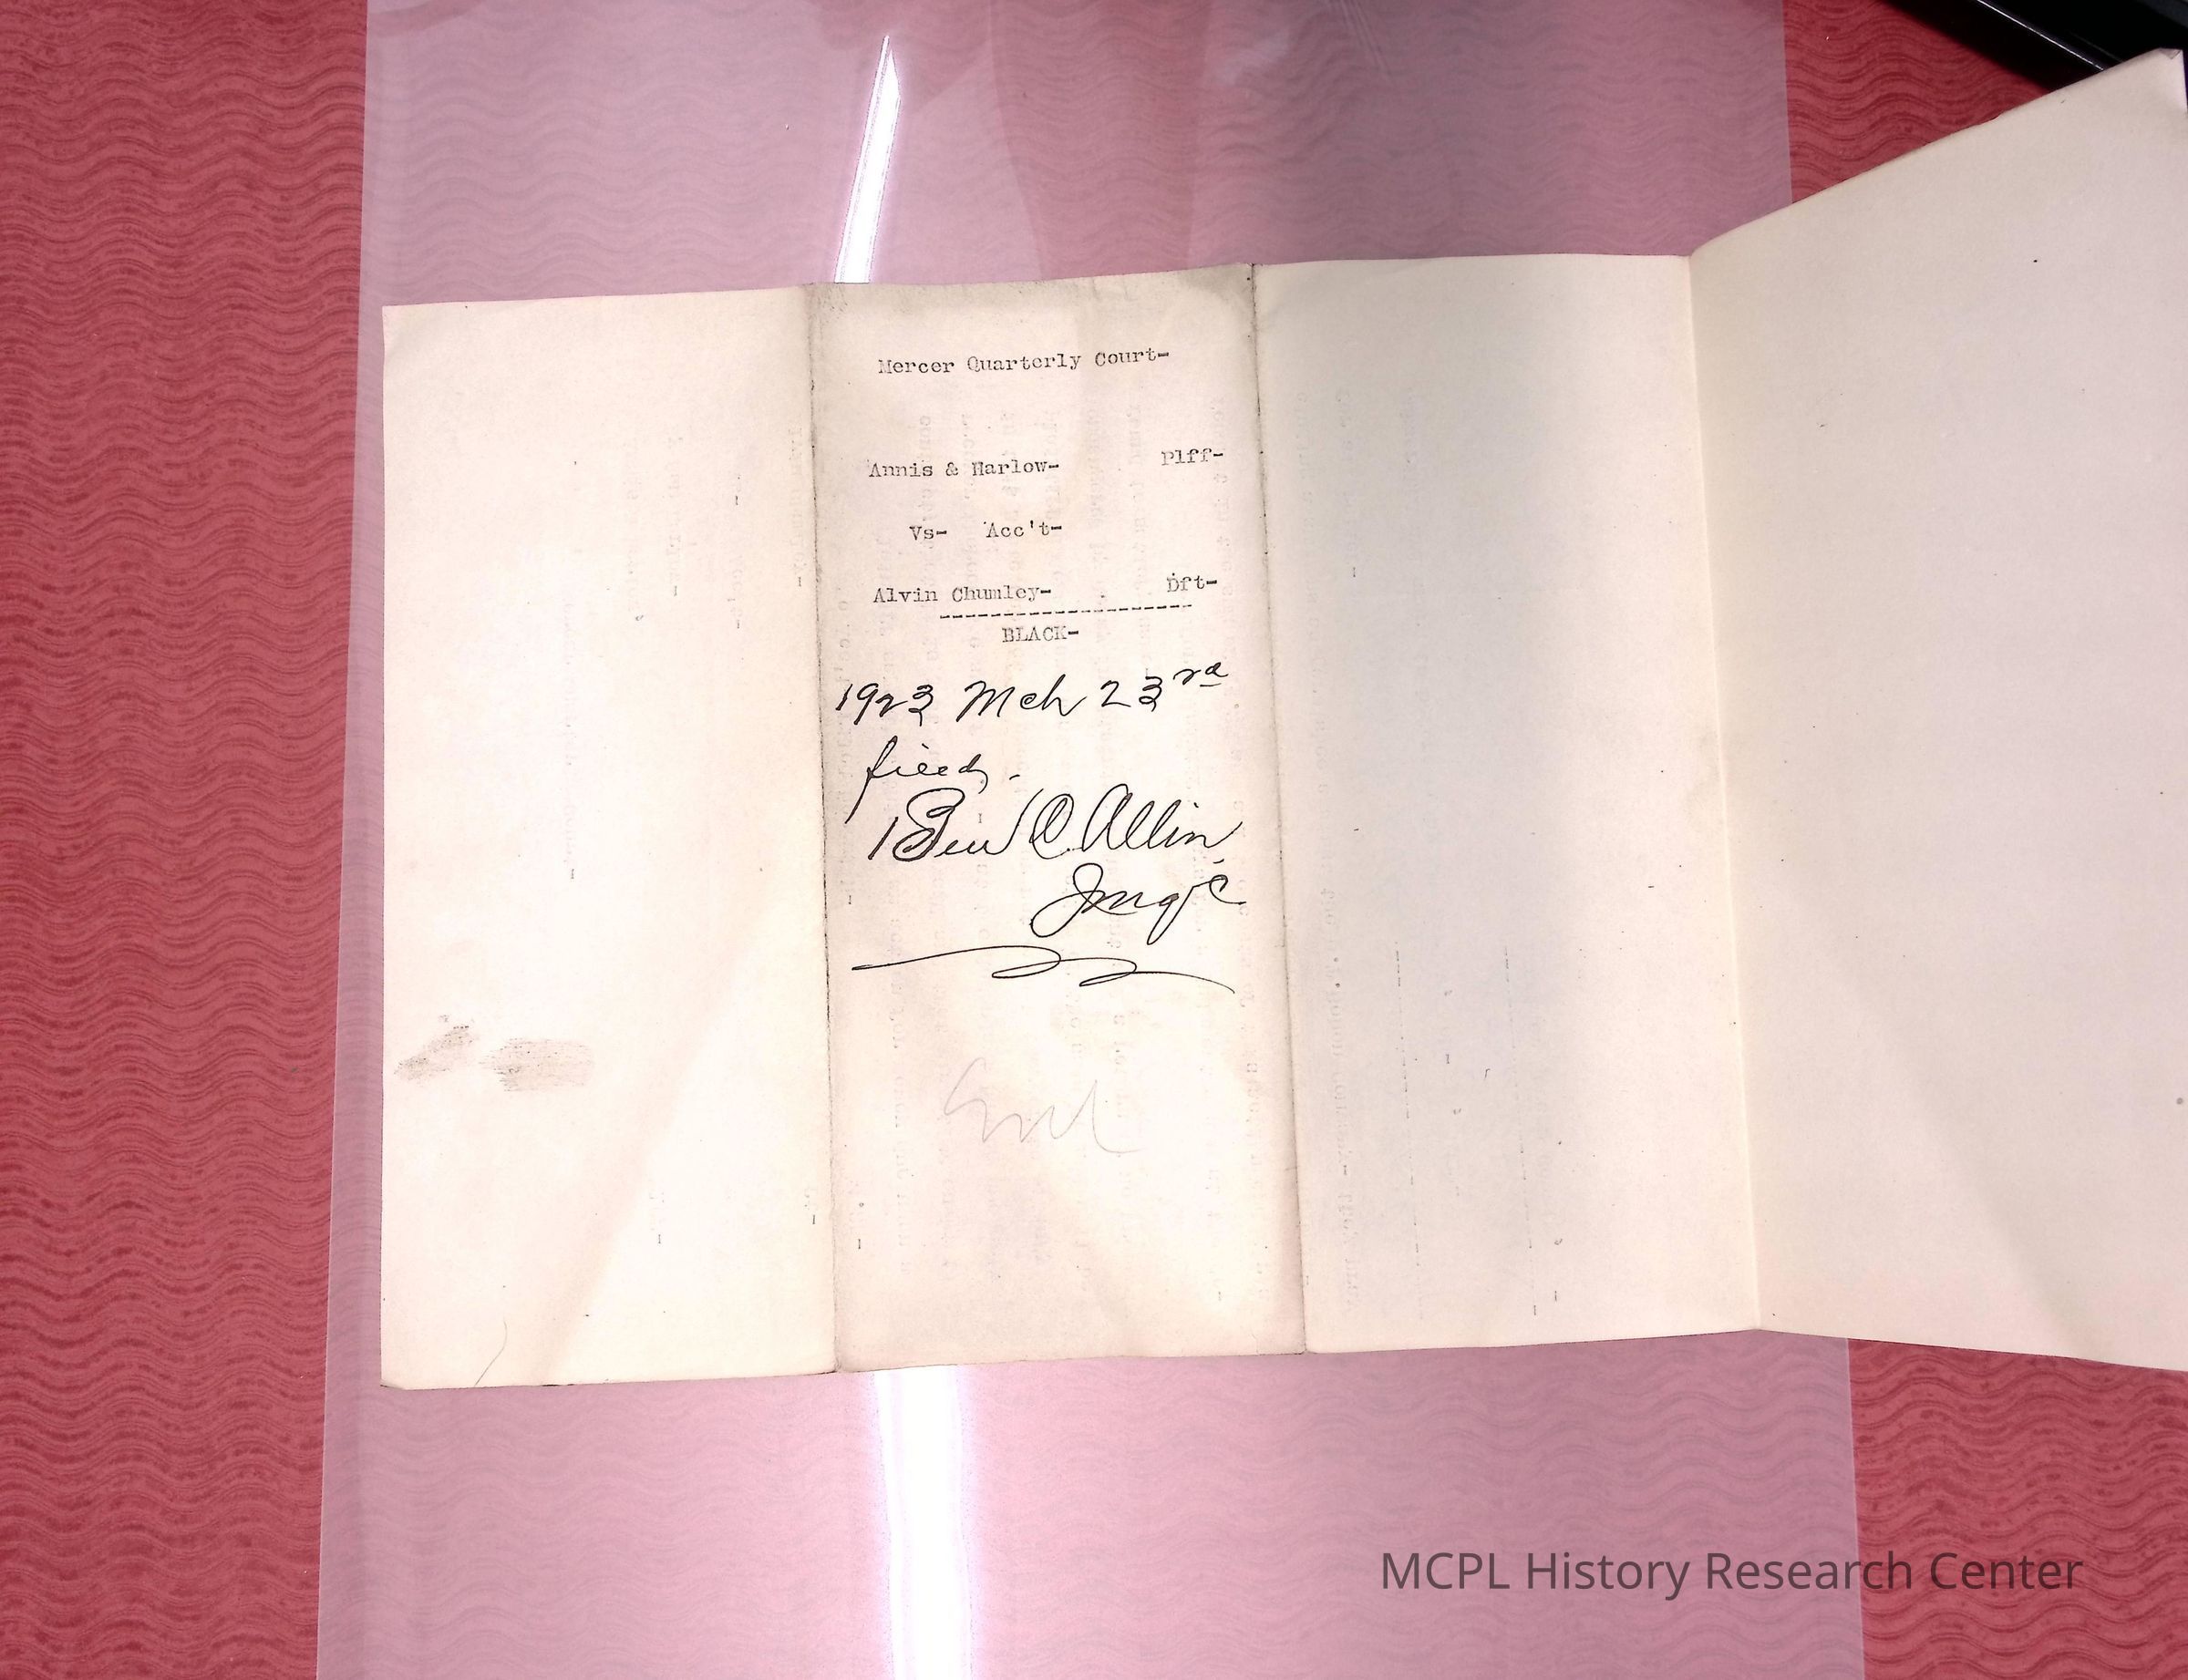 Mercer Quarterly Court-
Annis & Harlow- Plff-
Vs- Acc't-
Alvin Chumley- Dft-
--------------------
BLACK-
1923 Mch 23rd
filed.
Ben C Allin
Judge
MCPL History Research Center